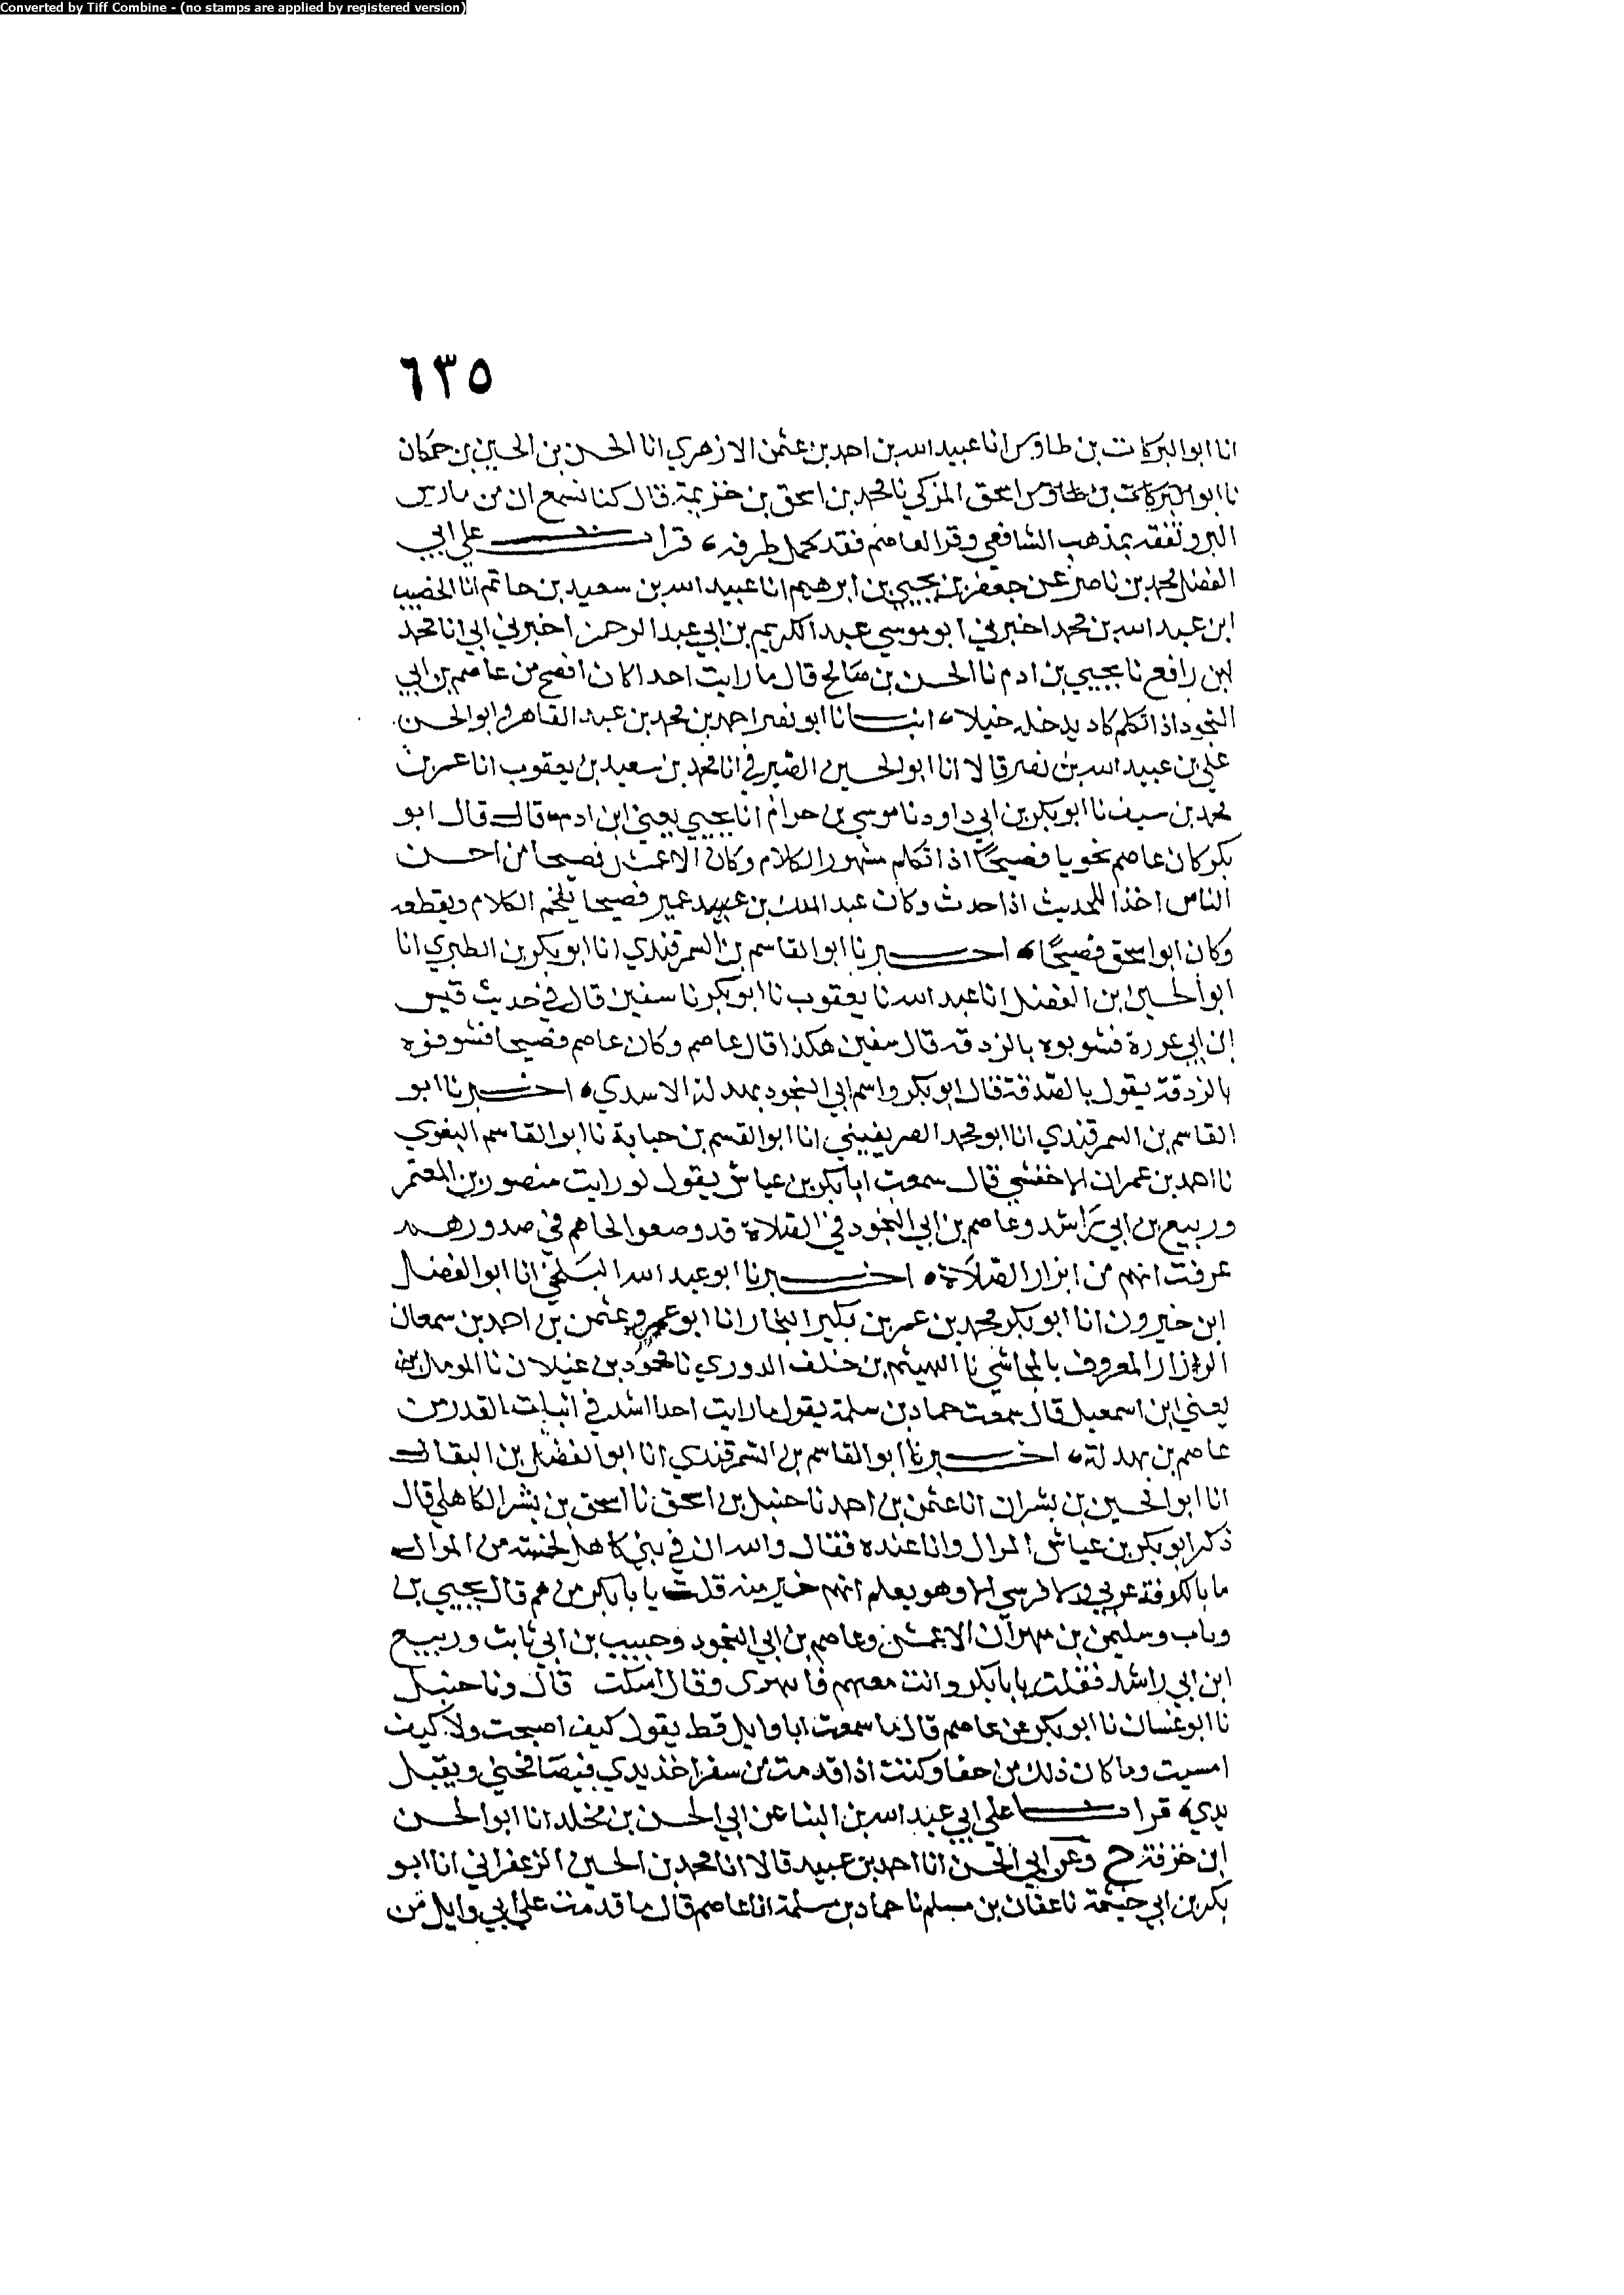 Converted by Tiff Combine - (no stamps are applied by registered version)
٦٣٥
انا ابو البركات بن طاوس انا عبيد الله بن احمد بن عثمن الازهري انا الحسن بن الحسين بن حمكان
نا ابو البركات بن طاوس اسحق المزكي نا محمد بن اسحق بن خزيمة قال كنا نسمع ان من
البر وتفقه بمذهب الشافعي وقرا لعاصم فقد كمل ظرفه قرات على ابي
الفضل محمد بن ناصر عن جعفر بن يحيي بن ابرهيم انا عبيد الله بن سعيد بن حاتم انا الخصيب
ابن عبد الله بن محمد اخبرني ابو موسي عبد الكريم بن ابي عبد الرحمن اخبرني ابي انا محمد
ابن رافع نا يحيي بن ادم نا الحسن بن صالح قال ما رايت احدا كان افصح من عاصم بن ابي
النجود اذا تكلم كاد يدخله خيلا انبانا ابو نصر احمد بن محمد بن عبد القاهر وابو الحسن
علي بن عبيد الله بن نصر قالا انا ابو الحسين الصيرفي انا محمد بن سعيد بن يعقوب انا عمر بن
محمد بن سيف نا ابو بكر بن ابي داود نا موسي بن حزام انا يحيي يعني ابن ادم قال قال ابو
بكر كان عاصم نحويا فصيحا اذا تكلم مشهور الكلام وكان الاعمش فصيحا من احسن
الناس اخذا للحديث اذا حدث وكان عبد الملك بن عمير فصيحا يفخم الكلام ويقطعه
وكان ابو اسحق فصيحا اخبرنا ابو القاسم بن السمرقندي انا ابو بكر بن الطبري انا
ابو الحسين بن الفضل انا عبد الله نا يعقوب نا ابو بكر نا سفين قال في حديث قيس
ابن ابي عررة فشوبوه بالزدقة قال سفين هكذا قال عاصم وكان عاصم فصيحا فشوفوه
بالزدقة يقول بالصدقة قال ابو بكر واسم ابي النجود بهدلة الاسدي اخبرنا ابو
القاسم بن السمرقندي انا ابو محمد الصريفيني انا ابو القسم بن حبابة نا ابو القاسم البغوي
نا احمد بن عمران الاخنسي قال سمعت ابا بكر بن عياش يقول لو رايت منصور بن المعتمر
وربيع بن ابي راشد وعاصم بن ابي النجود في الصلاة قد وضعوا لحاهم في صدورهم
عرفت انهم من ابزار الصلاة اخبرنا ابو عبد الله البلخي انا ابو الفضل
ابن خيرون انا ابو بكر محمد بن عمر بن بكير النجار انا ابو عمرو عثمن بن احمد بن سمعان
الرزاز المعروف بالمجاشي نا الهيثم بن خلف الدوري نا محمود بن غيلان نا المومل
يعني ابن اسمعيل قال سمعت حماد بن سلمة يقول ما رايت احدا اشد في اثبات القدر من
عاصم بن بهدلة اخبرنا ابو القاسم بن السمرقندي انا ابو الفضل بن البقال
انا ابو الحسين بن بشران انا عثمن بن احمد نا حنبل بن اسحق نا اسحق بن بشر الكاهلي قال
ذكر ابو بكر بن عياش الموال وانا عنده فقال والله ان في بني كاهل لخمسة من الموال
ما بالكوفة عربي ولا قرسي الا وهو يعلم انهم خير منه قلت يا با بكر من هم قال يحيي بن
وثاب وسليمن بن مهران الاعمش وعاصم بن ابي النجود وحبيب بن ابي ثابت وربيع
ابن ابي راشد فقلت يا با بكر وانت معهم وقال اسكت قال ونا حنبل
نا ابو غسان نا ابو بكر عن عاصم قال ما سمعت ابا وايل قط يقول كيف اصبحت ولا كيف
امسيت وما كان ذلك من جفا وكنت اذا قدمت من سفر اخذ يدي فيصافحني ويقبل
يدي قرات على ابي عبد الله بن البنا عن ابي الحسن بن مخلد انا ابو الحسن
ابن خزفة ح وعن ابي الحسن انا احمد بن عبيد قالا انا محمد بن الحسين الزعفراني انا ابو
بكر بن ابي خيثمة نا عفان بن مسلم نا حماد بن سلمة انا عاصم قال ما قدمت على ابي وايل من